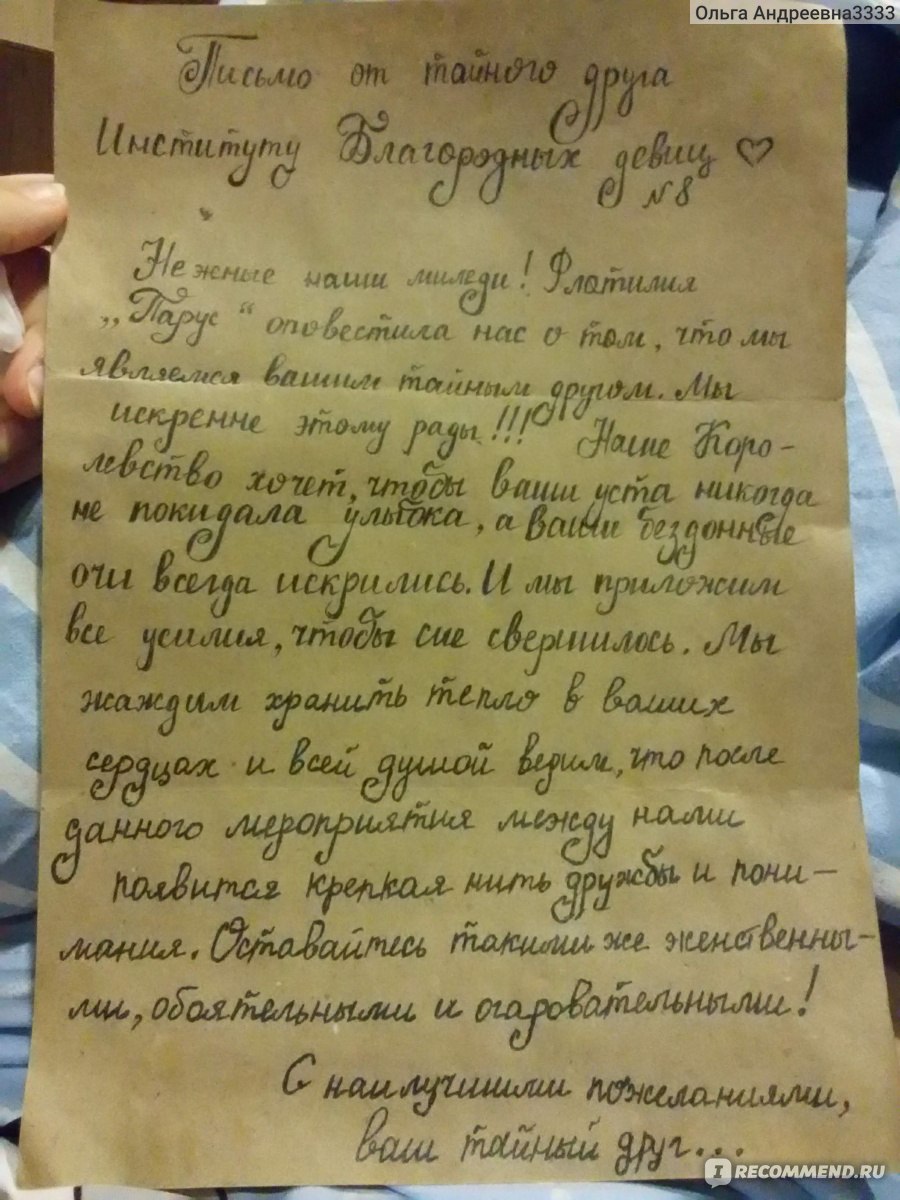 Ольга Андреевна3333
Письмо от тайного друга
Институту Благородных девиц ♡
N 8
Нежные наши миледи! Флотилия
„Парус“ оповестила нас о том, что мы
являемся вашим тайным другом. Мы
искренне этому рады!!! Наше Коро-
левство хочет, чтобы ваши уста никогда
не покидала улыбка, а ваши бездонные
очи всегда искрились. И мы приложим
все усилия, чтобы сие свершилось. Мы
жаждим хранить тепло в ваших
сердцах и всей душой верим, что после
данного мероприятия между нами
появится крепкая нить дружбы и пони-
мания. Оставайтесь такими же женственны-
ми, обоятельными и очаровательными!
С наилучшими пожеланиями,
ваш тайный друг...
IRECOMMEND.RU